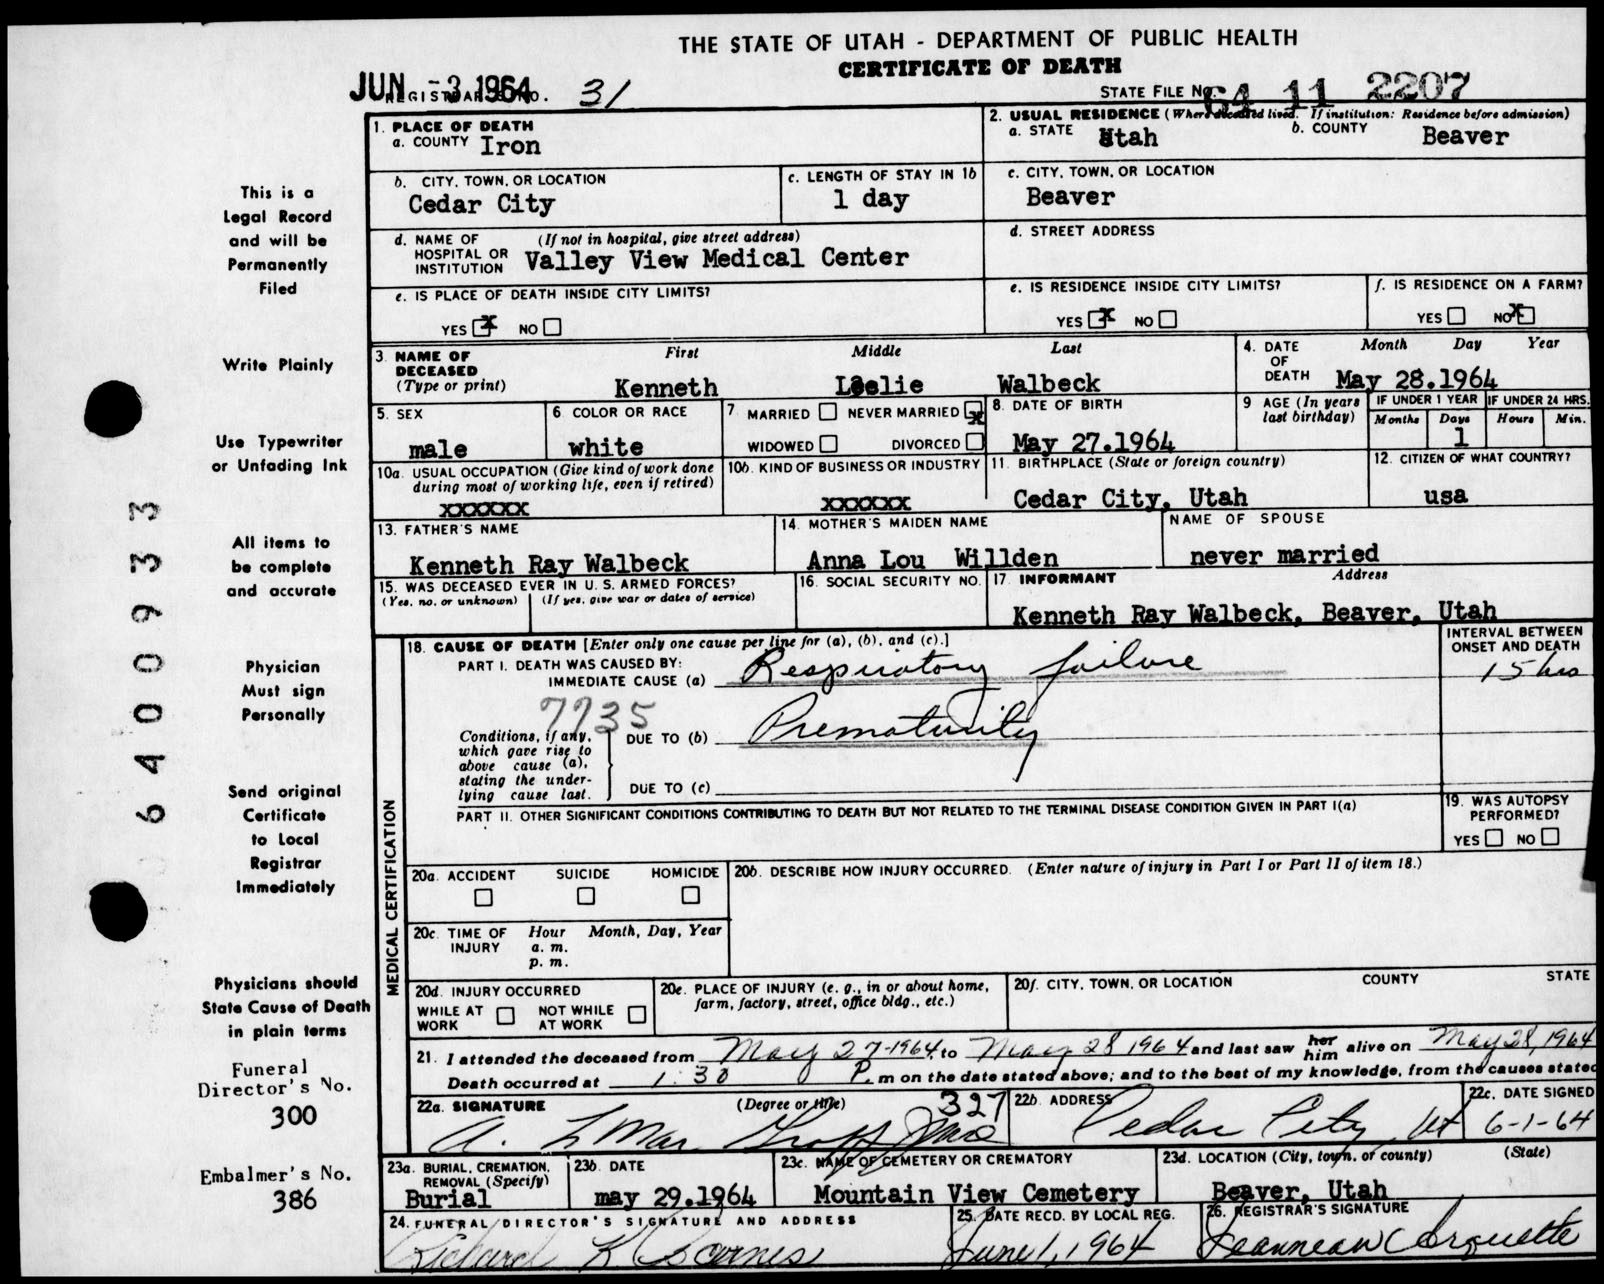 THE STATE OF UTAH - DEPARTMENT OF PUBLIC HEALTH
CERTIFICATE OF DEATH
JUN -3 1964
REGISTRAR'S NO. 31
STATE FILE NO. 64 11 2207
1. PLACE OF DEATH
a. COUNTY Iron
2. USUAL RESIDENCE (Where deceased lived. If institution: Residence before admission)
a. STATE Utah b. COUNTY Beaver
b. CITY, TOWN, OR LOCATION
Cedar City
c. LENGTH OF STAY IN 1b
1 day
c. CITY, TOWN, OR LOCATION
Beaver
d. NAME OF HOSPITAL OR INSTITUTION (If not in hospital, give street address)
Valley View Medical Center
d. STREET ADDRESS
e. IS PLACE OF DEATH INSIDE CITY LIMITS?
YES x NO
e. IS RESIDENCE INSIDE CITY LIMITS?
YES x NO
f. IS RESIDENCE ON A FARM?
YES NO x
3. NAME OF DECEASED (Type or print)
First Middle Last
Kenneth Leslie Walbeck
4. DATE OF DEATH
Month Day Year
May 28.1964
5. SEX
male
6. COLOR OR RACE
white
7. MARRIED NEVER MARRIED x
WIDOWED DIVORCED
8. DATE OF BIRTH
May 27.1964
9 AGE (In years last birthday)
IF UNDER 1 YEAR IF UNDER 24 HRS.
Months Days Hours Min.
1
10a. USUAL OCCUPATION (Give kind of work done during most of working life, even if retired)
xxxxxx
10b. KIND OF BUSINESS OR INDUSTRY
xxxxxx
11. BIRTHPLACE (State or foreign country)
Cedar City, Utah
12. CITIZEN OF WHAT COUNTRY?
usa
13. FATHER'S NAME
Kenneth Ray Walbeck
14. MOTHER'S MAIDEN NAME
Anna Lou Willden
NAME OF SPOUSE
never married
15. WAS DECEASED EVER IN U. S. ARMED FORCES?
(Yes, no, or unknown) (If yes, give war or dates of service)
16. SOCIAL SECURITY NO.
17. INFORMANT Address
Kenneth Ray Walbeck, Beaver, Utah
18. CAUSE OF DEATH [Enter only one cause per line for (a), (b), and (c).]
INTERVAL BETWEEN ONSET AND DEATH
PART I. DEATH WAS CAUSED BY:
IMMEDIATE CAUSE (a) Respiratory failure 15 hrs
7735
Conditions, if any, which gave rise to above cause (a), stating the underlying cause last.
DUE TO (b) Prematurity
DUE TO (c)
PART II. OTHER SIGNIFICANT CONDITIONS CONTRIBUTING TO DEATH BUT NOT RELATED TO THE TERMINAL DISEASE CONDITION GIVEN IN PART I(a)
19. WAS AUTOPSY PERFORMED?
YES NO
MEDICAL CERTIFICATION
20a. ACCIDENT SUICIDE HOMICIDE
20b. DESCRIBE HOW INJURY OCCURRED. (Enter nature of injury in Part I or Part II of item 18.)
20c. TIME OF INJURY Hour Month, Day, Year
a. m.
p. m.
20d. INJURY OCCURRED
WHILE AT WORK NOT WHILE AT WORK
20e. PLACE OF INJURY (e. g., in or about home, farm, factory, street, office bldg., etc.)
20f. CITY, TOWN, OR LOCATION COUNTY STATE
21. I attended the deceased from May 27-1964 to May 28 1964 and last saw her him alive on May 28, 1964
Death occurred at 1:30 P. m on the date stated above; and to the best of my knowledge, from the causes stated
22a. SIGNATURE (Degree or title) 327
22b. ADDRESS
Cedar City, Ut
22c. DATE SIGNED
6-1-64
23a. BURIAL, CREMATION, REMOVAL (Specify)
Burial
23b. DATE
may 29.1964
23c. NAME OF CEMETERY OR CREMATORY
Mountain View Cemetery
23d. LOCATION (City, town, or county) (State)
Beaver, Utah
24. FUNERAL DIRECTOR'S SIGNATURE AND ADDRESS
Richard K Barnes
25. DATE RECD. BY LOCAL REG.
June 1, 1964
26. REGISTRAR'S SIGNATURE
This is a
Legal Record
and will be
Permanently
Filed
Write Plainly
Use Typewriter
or Unfading Ink
All items to
be complete
and accurate
Physician
Must sign
Personally
Send original
Certificate
to Local
Registrar
Immediately
Physicians should
State Cause of Death
in plain terms
Funeral
Director's No.
300
Embalmer's No.
386
6400933